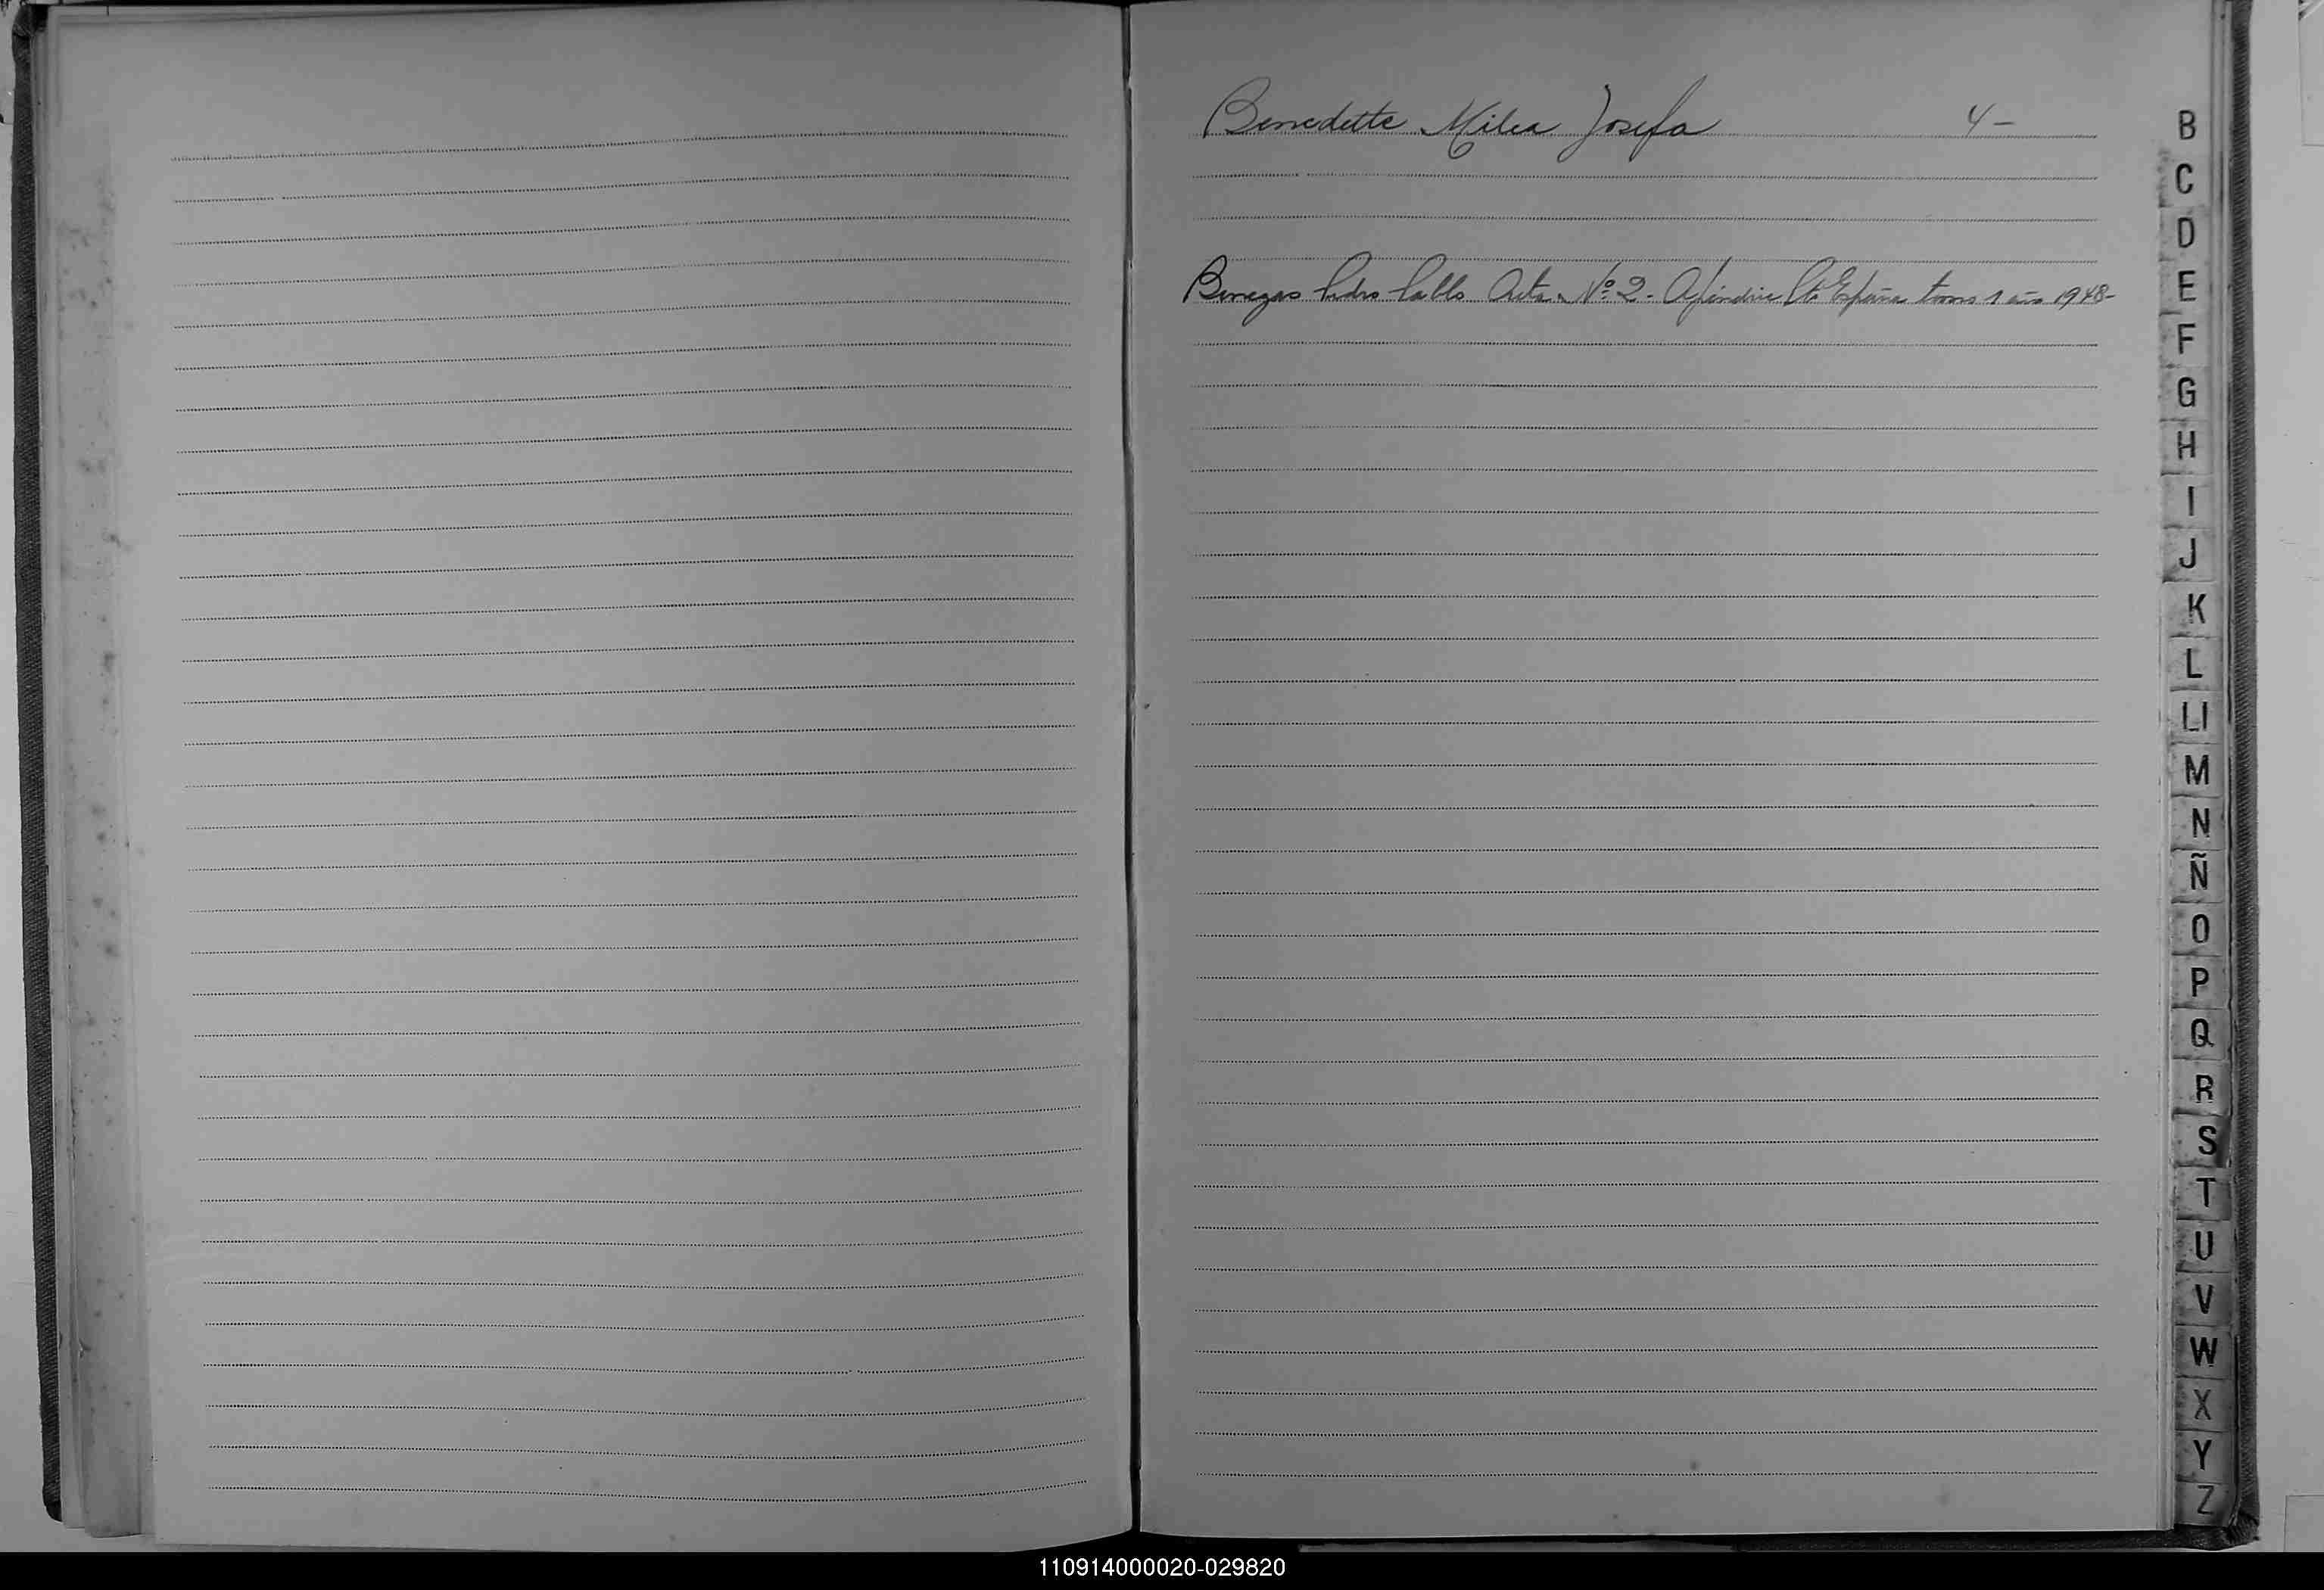 Benedette Milea Josefa 4-
Benegas Pedro Pablo Acta Nº 2- Apéndice Cte España tomo 1 año 1948-
B
C
D
E
F
G
H
I
J
K
L
Ll
M
N
Ñ
O
P
Q
R
S
T
U
V
W
X
Y
Z
110914000020-029820